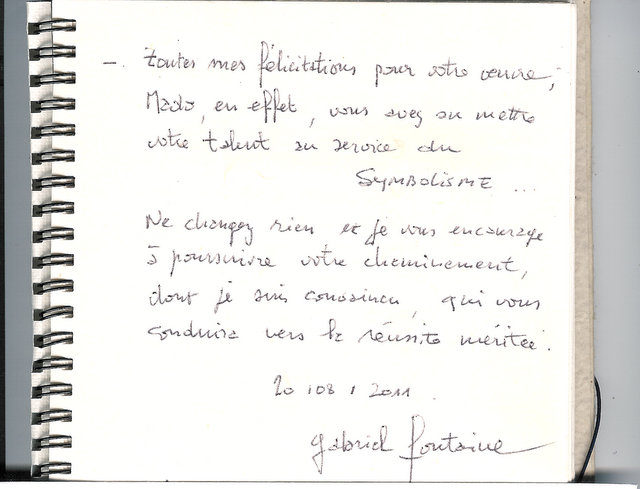 -. toutes mes félicitations pour votre oeuvre,
Mado, en effet, vous avez su mettre
votre talent au service du
SYMBOLISME ...
Ne changez rien et je vous encourage
à poursuivre votre cheminement,
dont je suis convaincu, qui vous
conduira vers la réussite méritée.
20 / 08 / 2011.
Gabriel Fontaine